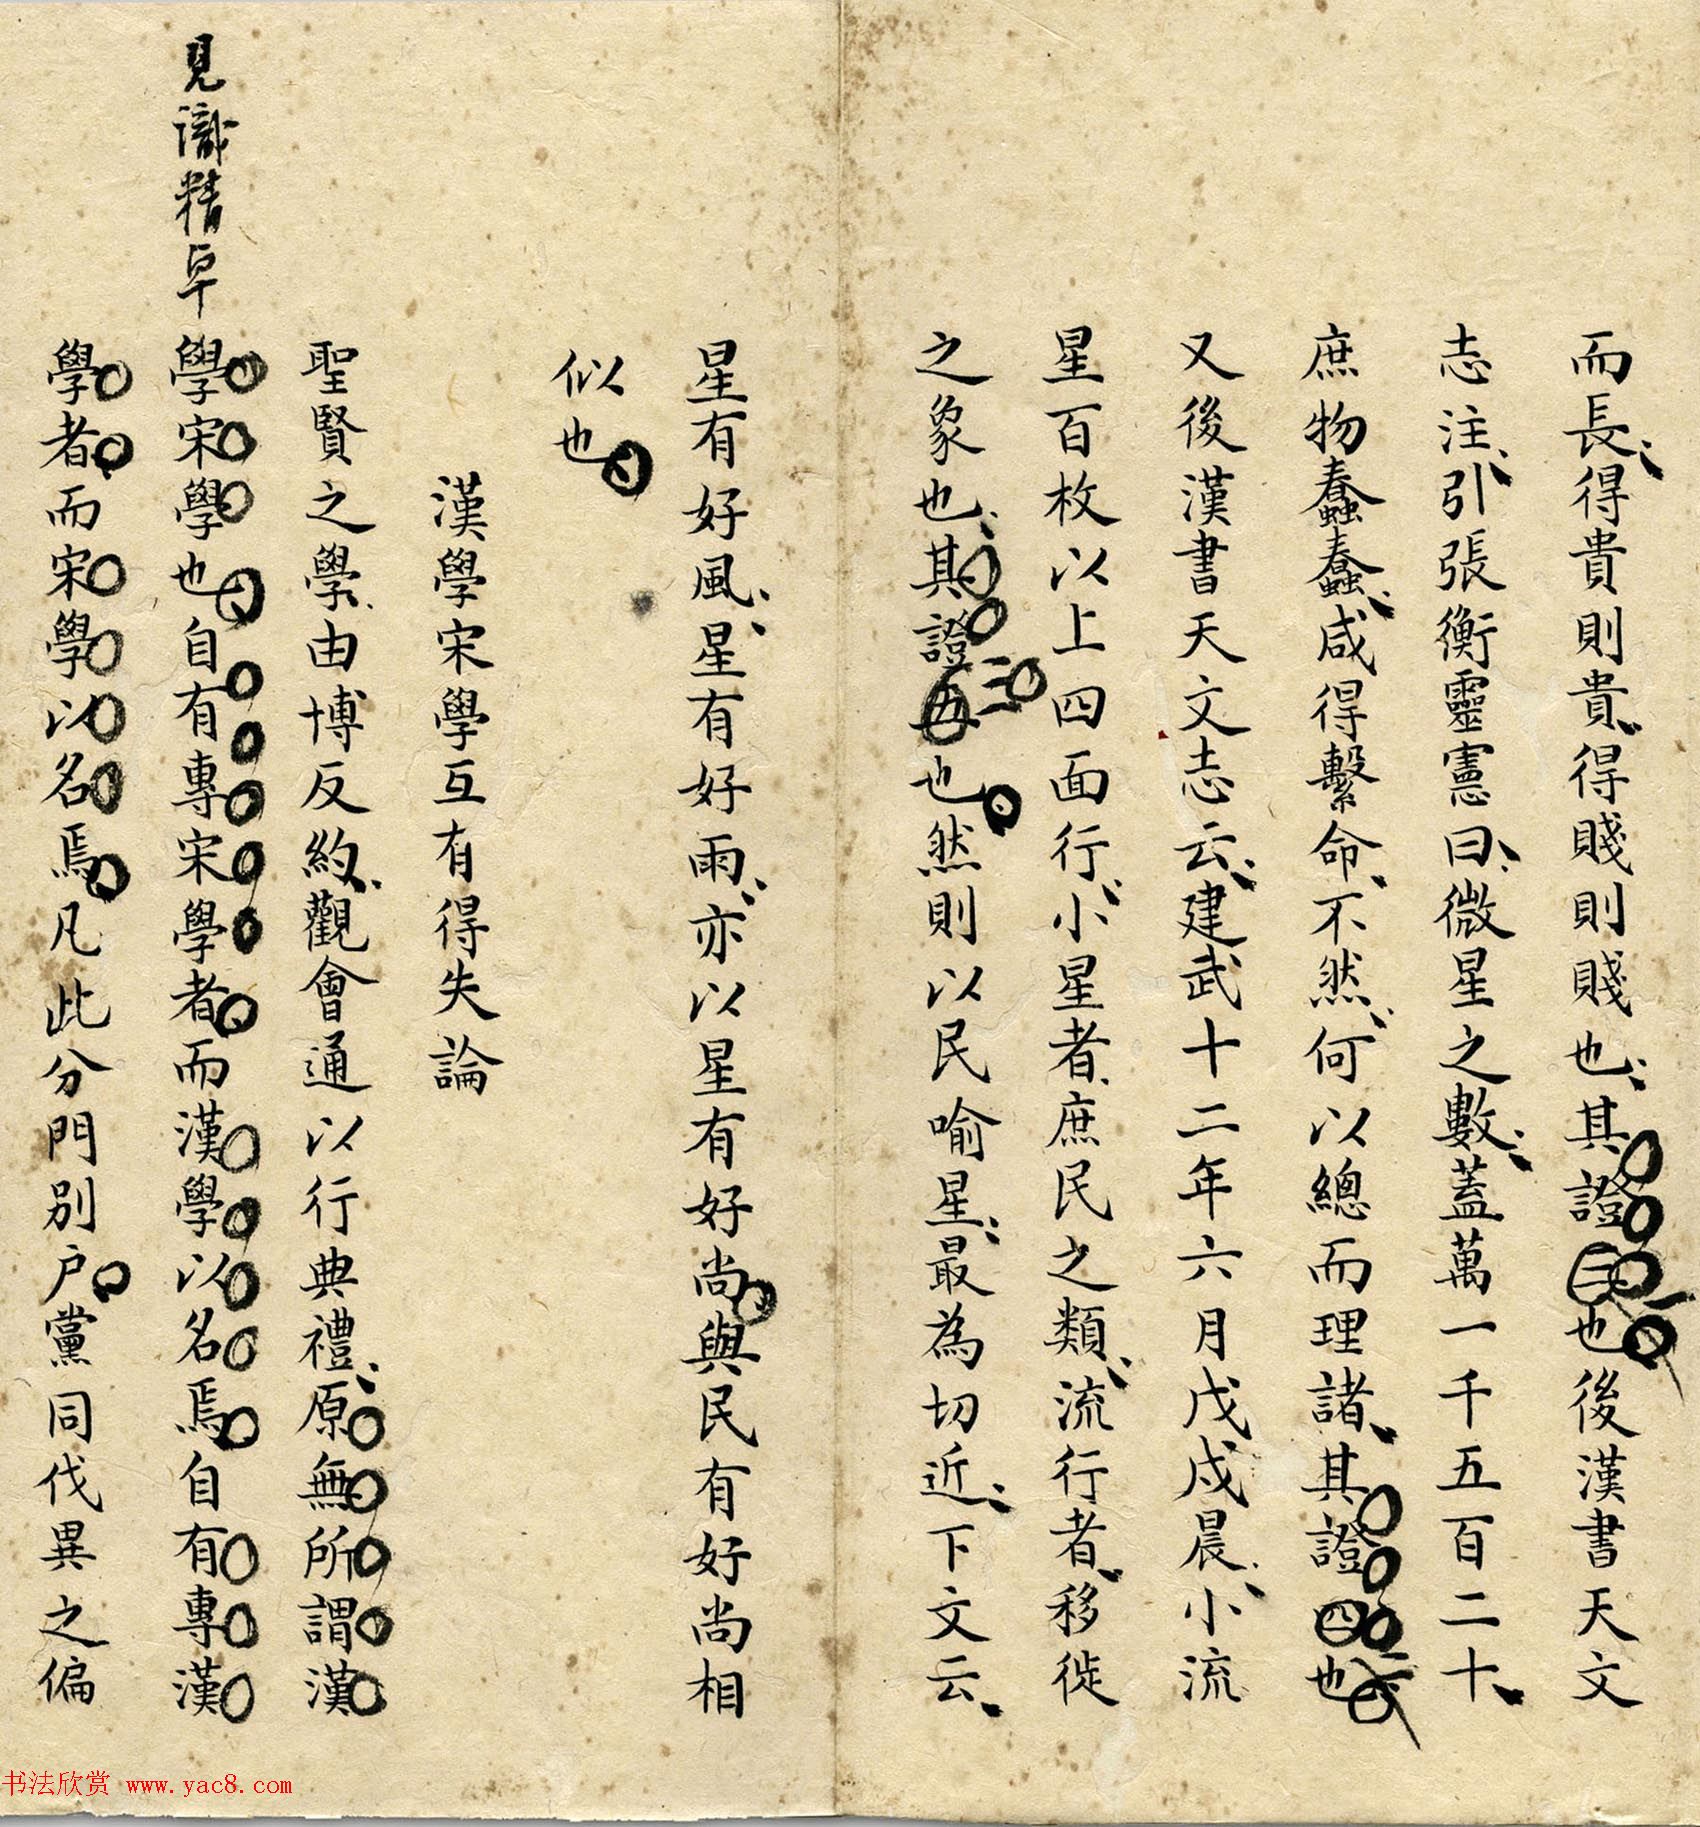 而長得貴則貴得賤則賤也其證三二也後漢書天文
志注引張衡靈憲曰微星之數蓋萬一千五百二十
庶物蠢蠢咸得繫命不然何以總而理諸其證四三也
又後漢書天文志云建武十二年六月戊戌晨小流
星百枚以上四面行小星者庶民之類流行者移徙
之象也其證五三也然則以民喻星最為切近下文云
星有好風星有好雨亦以星有好尚與民有好尚相
似也
漢學宋學互有得失論
聖賢之學由博反約觀會通以行典禮原無所謂漢
學宋學也自有專宋學者而漢學以名焉自有專漢
學者而宋學以名焉凡此分門別户黨同伐異之偏
見識精卓
书法欣赏 www.yac8.com